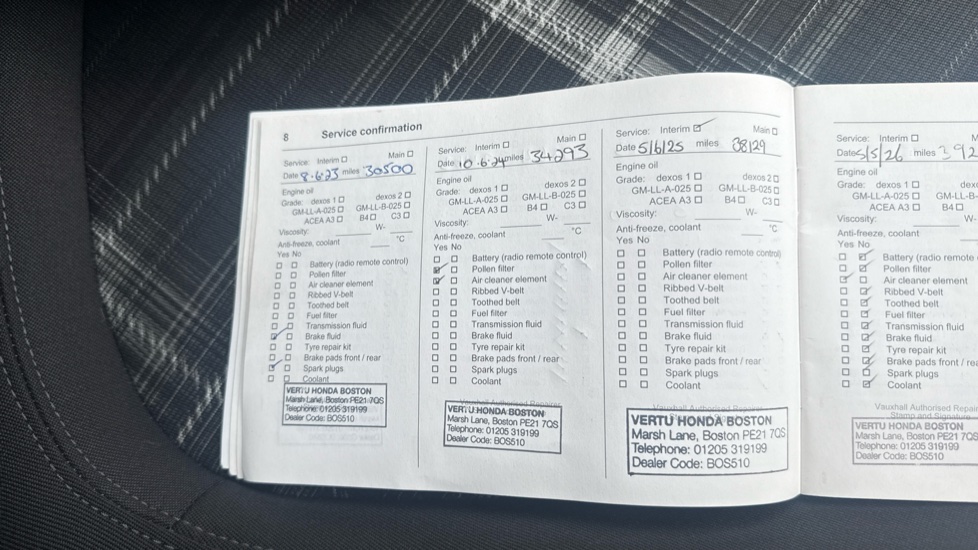 8 Service confirmation
Service: Interim ☐ Main ☐
Date 8.6.23 miles 30500
Engine oil
Grade: dexos 1 ☐ dexos 2 ☐
GM-LL-A-025 ☐ GM-LL-B-025 ☐
ACEA A3 ☐ B4 ☐ C3 ☐
Viscosity: W-
Anti-freeze, coolant °C
Yes No
☐ ☐ Battery (radio remote control)
☐ ☐ Pollen filter
☐ ☐ Air cleaner element
☐ ☐ Ribbed V-belt
☐ ☐ Toothed belt
☐ ☐ Fuel filter
☐ ☐ Transmission fluid
☑ ☐ Brake fluid
☐ ☐ Tyre repair kit
☐ ☐ Brake pads front / rear
☑ ☐ Spark plugs
☐ ☐ Coolant
VERTU HONDA BOSTON
Marsh Lane, Boston PE21 7QS
Telephone: 01205 319199
Dealer Code: BOS510
Service: Interim ☐ Main ☐
Date 10.6.24 miles 34293
Engine oil
Grade: dexos 1 ☐ dexos 2 ☐
GM-LL-A-025 ☐ GM-LL-B-025 ☐
ACEA A3 ☐ B4 ☐ C3 ☐
Viscosity: W-
Anti-freeze, coolant °C
Yes No
☐ ☐ Battery (radio remote control)
☑ ☐ Pollen filter
☑ ☐ Air cleaner element
☐ ☐ Ribbed V-belt
☐ ☐ Toothed belt
☐ ☐ Fuel filter
☐ ☐ Transmission fluid
☐ ☐ Brake fluid
☐ ☐ Tyre repair kit
☐ ☐ Brake pads front / rear
☐ ☐ Spark plugs
☐ ☐ Coolant
Vauxhall Authorised Repairer
VERTU HONDA BOSTON
Marsh Lane, Boston PE21 7QS
Telephone: 01205 319199
Dealer Code: BOS510
Service: Interim ☑ Main ☐
Date 5/6/25 miles 38129
Engine oil
Grade: dexos 1 ☐ dexos 2 ☐
GM-LL-A-025 ☐ GM-LL-B-025 ☐
ACEA A3 ☐ B4 ☐ C3 ☐
Viscosity: W-
Anti-freeze, coolant °C
Yes No
☐ ☐ Battery (radio remote control)
☐ ☐ Pollen filter
☐ ☐ Air cleaner element
☐ ☐ Ribbed V-belt
☐ ☐ Toothed belt
☐ ☐ Fuel filter
☐ ☐ Transmission fluid
☐ ☐ Brake fluid
☐ ☐ Tyre repair kit
☐ ☐ Brake pads front / rear
☐ ☐ Spark plugs
☐ ☐ Coolant
Vauxhall Authorised Repairer
VERTU HONDA BOSTON
Marsh Lane, Boston PE21 7QS
Telephone: 01205 319199
Dealer Code: BOS510
Service: Interim ☐ M
Date 5/5/26 miles 392
Engine oil
Grade: dexos 1 ☐ dex
GM-LL-A-025 ☐ GM-LL-B-
ACEA A3 ☐ B4 ☐
Viscosity:
Anti-freeze, coolant
Yes No
☐ ☑ Battery (radio remote
☐ ☑ Pollen filter
☑ ☐ Air cleaner element
☐ ☑ Ribbed V-belt
☐ ☑ Toothed belt
☐ ☑ Fuel filter
☐ ☑ Transmission fluid
☐ ☑ Brake fluid
☐ ☑ Tyre repair kit
☐ ☑ Brake pads front / rea
☐ ☐ Spark plugs
☐ ☑ Coolant
Vauxhall Authorised Repair
Stamp and Signature
VERTU HONDA BOSTON
Marsh Lane, Boston PE21 7QS
Telephone: 01205 319199
Dealer Code: BOS510